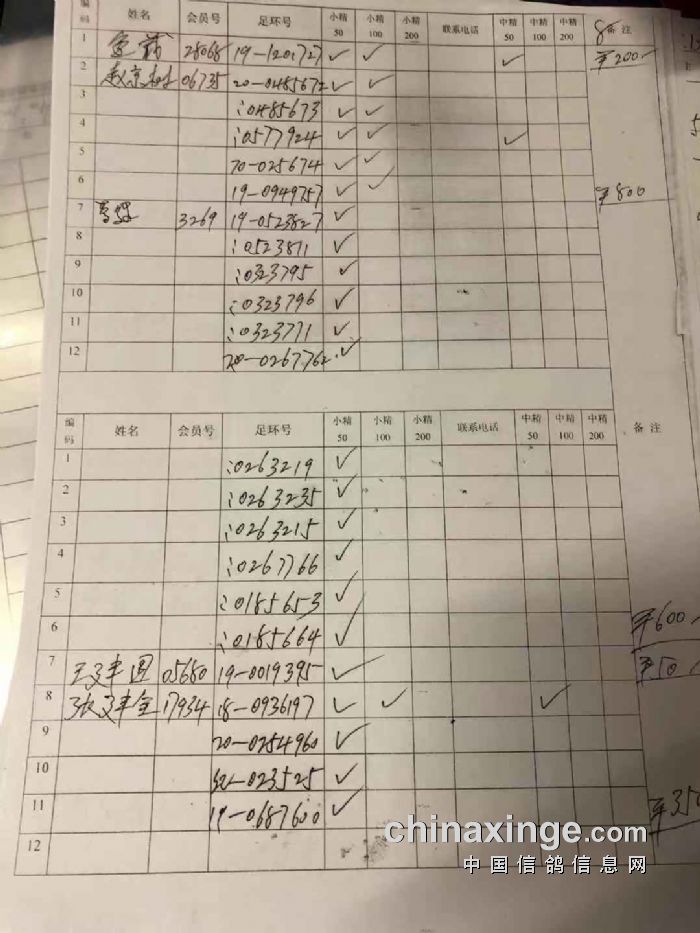 编码 姓名 会员号 足环号 小精50 小精100 小精200 联系电话 中精50 中精100 中精200 备注
1 28068 19-1201727 ✓ ✓ ✓ ¥200
2 06735 20-0485672 ✓ ✓
3 :0485673 ✓ ✓
4 :0577924 ✓ ✓ ✓
5 20-025674 ✓ ✓
6 19-0949757 ✓ ✓ ¥800
7 3269 19-0523827 ✓
8 :0523811 ✓
9 :0323795 ✓
10 :0323796 ✓
11 :0323771 ✓
12 20-0267762 ✓
编码 姓名 会员号 足环号 小精50 小精100 小精200 联系电话 中精50 中精100 中精200 备注
1 :0263219 ✓
2 :0263235 ✓
3 :0263215 ✓
4 :0267766 ✓
5 :0185653 ✓
6 :0185664 ✓ ¥600
7 05680 19-0019395 ✓ ¥50
8 17934 18-0936197 ✓ ✓ ✓
9 20-0254960 ✓
10 023525 ✓
11 19-0687600 ✓ ¥350
12
chinaxinge.com
中国信鸽信息网